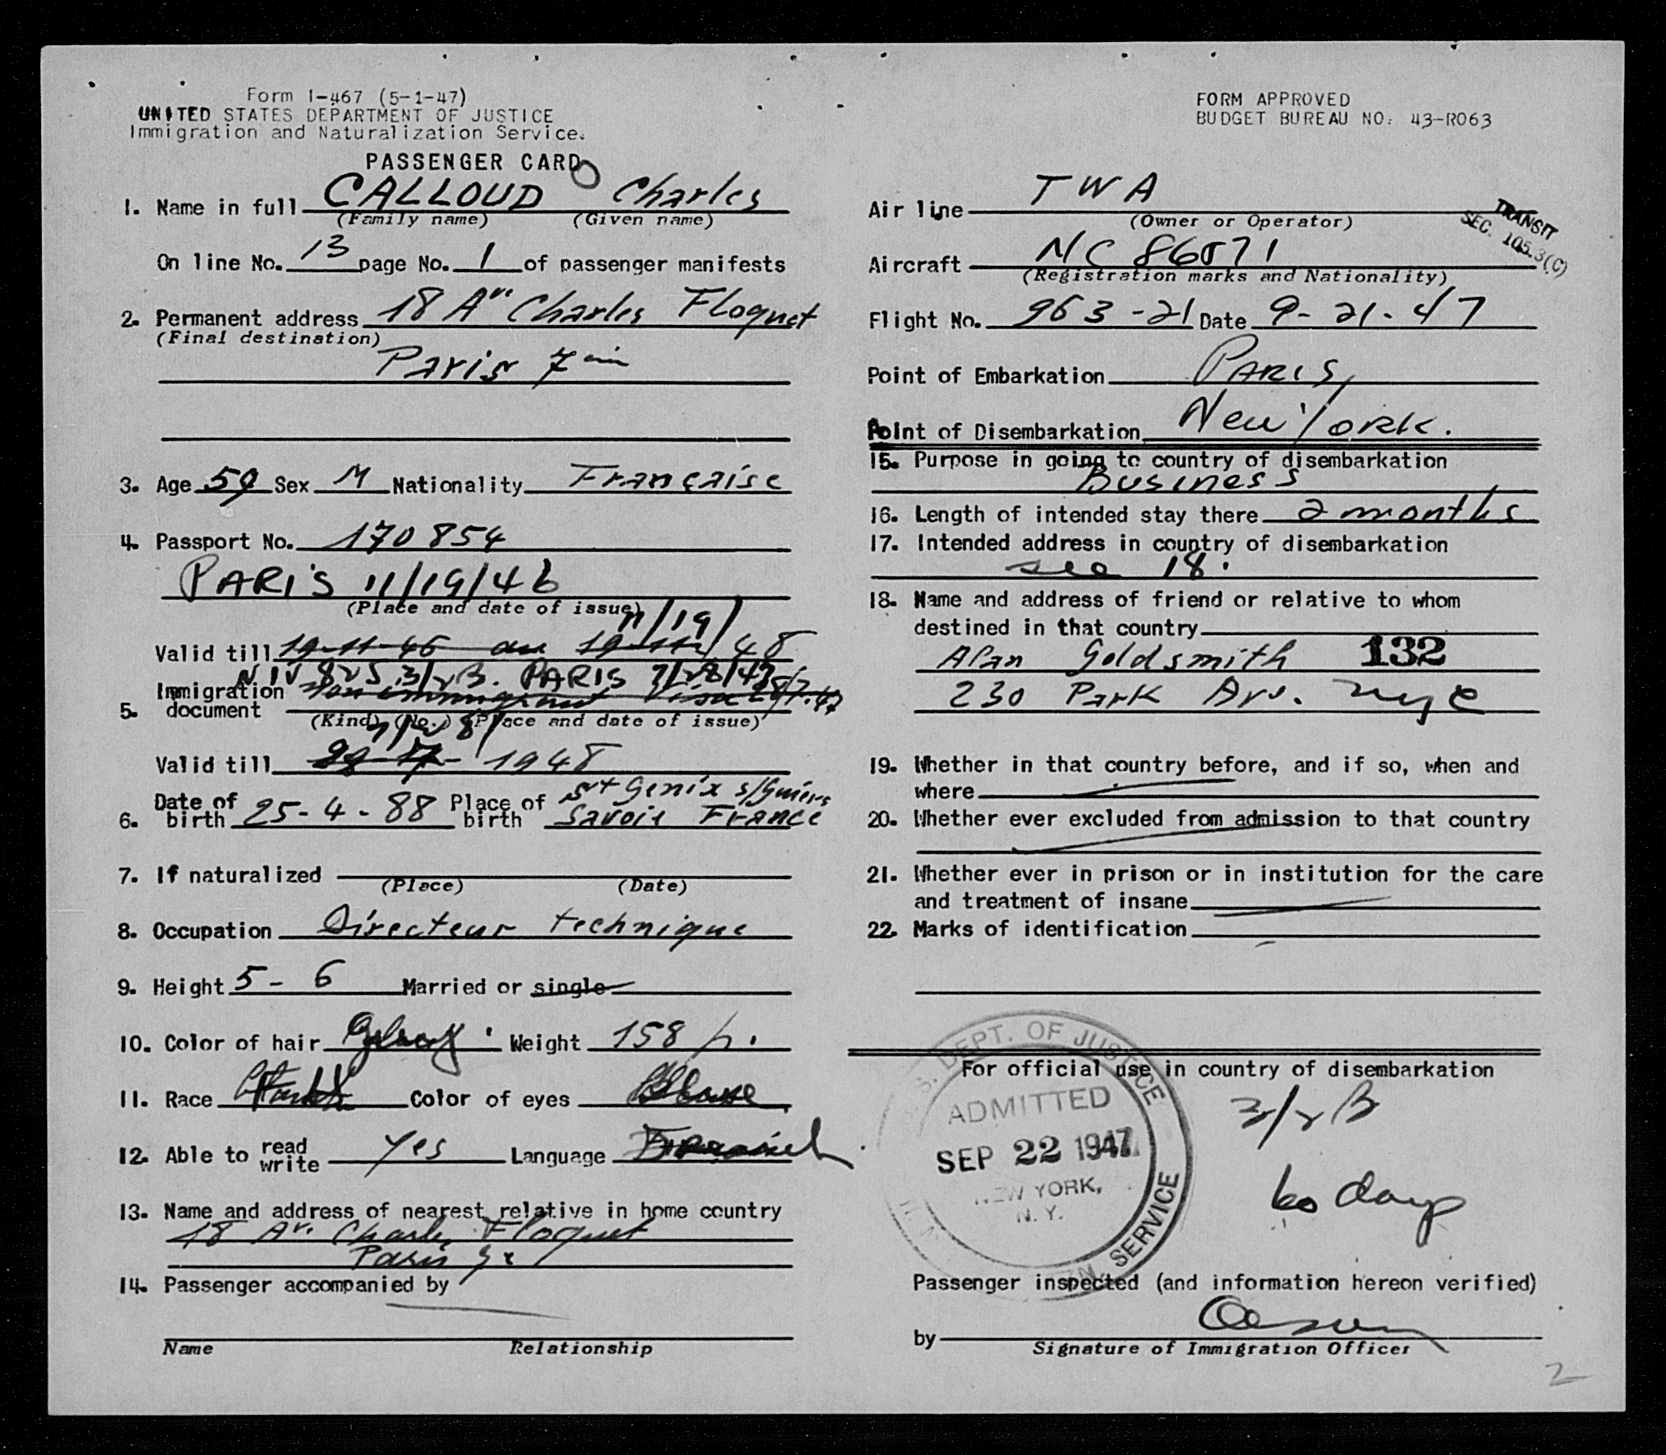 Form I-467 (5-1-47)
UNITED STATES DEPARTMENT OF JUSTICE
Immigration and Naturalization Service.
PASSENGER CARD
1. Name in full CALLOUD Charles
(Family name) (Given name)
On line No. 13 page No. 1 of passenger manifests
2. Permanent address 18 Av Charles Floquet
(Final destination)
Paris 7
3. Age 59 Sex M Nationality Française
4. Passport No. 170854
PARIS 11/19/46
(Place and date of issue)
11/19/
Valid till 48
PARIS 7/28/47
5. Immigration document
(Kind) (No.) (Place and date of issue)
Valid till 1948
6. Date of birth 25-4-88 Place of birth St Genix s/Guiers
Savoie France
7. If naturalized
(Place) (Date)
8. Occupation Directeur technique
9. Height 5-6 Married or single
10. Color of hair Weight 158
11. Race Color of eyes
12. Able to read write Yes Language
13. Name and address of nearest relative in home country
18 Av. Charles Floquet
Paris
14. Passenger accompanied by
Name Relationship
FORM APPROVED
BUDGET BUREAU NO. 43-R063
Air line TWA
(Owner or Operator)
TRANSIT
SEC. 105.3(C)
Aircraft NC 86071
(Registration marks and Nationality)
Flight No. 963-21 Date 9-21-47
Point of Embarkation PARIS
Point of Disembarkation New York.
15. Purpose in going to country of disembarkation
Business
16. Length of intended stay there 2 months
17. Intended address in country of disembarkation
see 18.
18. Name and address of friend or relative to whom
destined in that country
Alan Goldsmith 132
230 Park Av. nyc
19. Whether in that country before, and if so, when and
where
20. Whether ever excluded from admission to that country
21. Whether ever in prison or in institution for the care
and treatment of insane
22. Marks of identification
For official use in country of disembarkation
DEPT. OF JUSTICE
ADMITTED
SEP 22 1947
NEW YORK,
N. Y.
SERVICE
3/2 B
60 days
Passenger inspected (and information hereon verified)
by
Signature of Immigration Officer
2